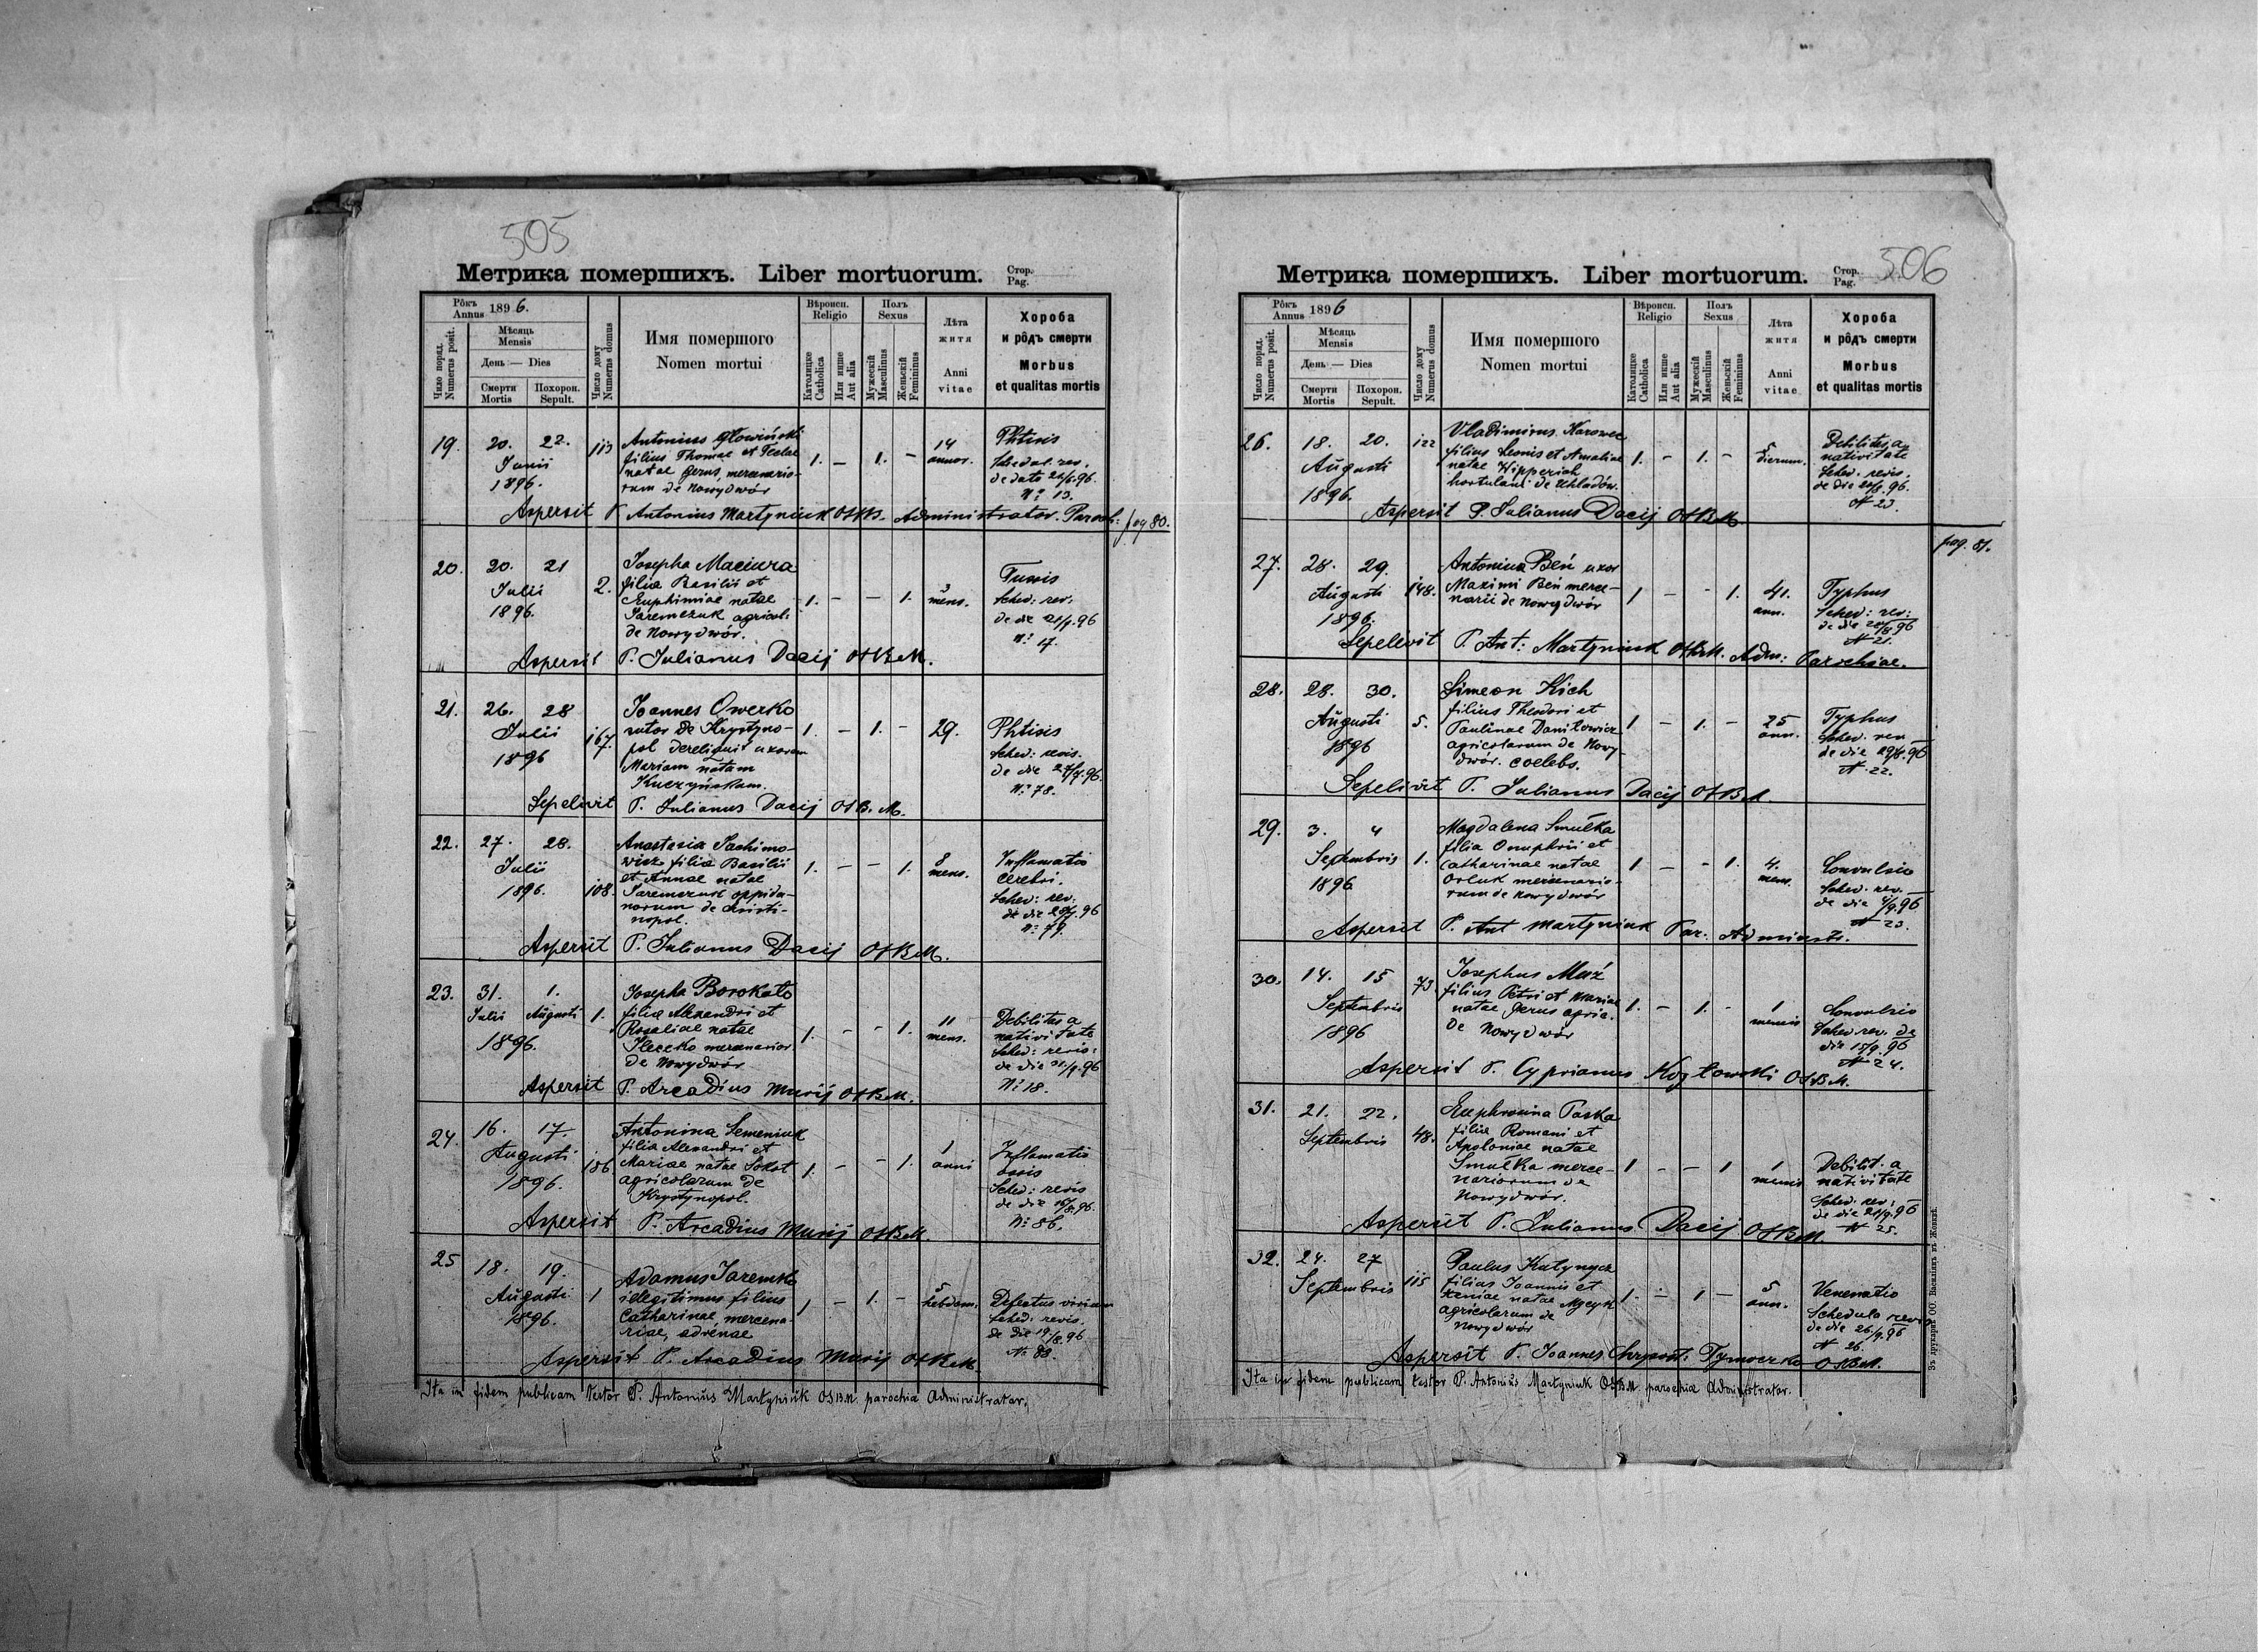 505
Метрика помершихъ. Liber mortuorum. Стор. Pag.
Рôкъ Annus 1896.
Число поряд. Numerus posit.
Мѣсяць Mensis
День — Dies
Смерти Mortis
Похорон. Sepult.
Число дому Numerus domus
Имя помершого
Nomen mortui
Вѣроисп. Religio
Католицке Catholica
Или инше Aut alia
Полъ Sexus
Мужескій Masculinus
Женьскій Femininus
Лѣта житя
Anni vitae
Хороба
и рôдъ смерти
Morbus
et qualitas mortis
19. 20. 22. Junii 1896. 113
Antonius Głowiński
filius Thomae et Teclae
natae Gerus, mercenario-
rum de Nowydwór
1. — 1. — 14 annor.
Phtisis
Schedul. rev.
de dato 20/6.96.
Nº 13.
Aspersit P. Antonius Martyniuk OSBM. Administrator. Paroch:
pag 80.
20. 20. 21 Julii 1896. 2.
Josepha Maciura
filia Basilii et
Euphimiae natae
Jaremczuk agricol:
de Nowydwór.
1. — — 1. 3 mens.
Tussis
Sched: rev:
de die 21/7.96
Nº 17.
Aspersit P. Julianus Dacij OSBM.
21. 26. 28 Julii 1896 167.
Joannes Owerko
sutor de Krystyno-
pol dereliquit uxorem
Mariam natam
Kuczyńskam.
1. — 1. — 29.
Phtisis
Sched: revis.
de die 27/7.96.
Nº 78.
Sepelivit P. Julianus Dacij OSB.M.
22. 27. 28. Julii 1896. 108.
Anastasia Jachimo-
wicz filia Basilii
et Annae natae
Jaremczuk oppida-
norum de Christi-
nopol.
1. — — 1. 8 mens.
Inflamatio
cerebri.
Sched: rev:
de die 28/7.96
Nº 79.
Aspersit P. Julianus Dacij OSBM.
23. 31. 1. Julii Augusti 1896. 1.
Josepha Borokoto
filia Alexandri et
Rosaliae natae
mercenarior.
de Nowydwór
1. — — 1. 11 mens.
Debilitas a
nativitate
Sched: revis:
de die 31/7.96
Nº 18.
Aspersit P. Arcadius Murij OSBM.
24. 16. 17. Augusti 1896. 186.
Antonina Semeniuk
filia Alexandri et
Mariae natae Sokot
agricolarum de
Krystynopol.
1. — — 1. 1 anni
Inflamatio
ossis
Sched: revis
de die 16/8.96.
Nº 86.
Aspersit P. Arcadius Murij OSBM.
25 18. 19. Augusti 1896. 1
Adamus Jaremko
illegitimus filius
Catharinae, mercena-
riae,
1 — 1. — 5 hebdom.
Defectus virium
Sched: revis.
de die 19/8.96
Nº 89.
Aspersit P. Arcadius Murij OSBM.
Ita in fidem publicam testor P. Antonius Martyniuk OSBM. parochia Administrator.
506
Метрика помершихъ. Liber mortuorum. Стор. Pag.
Рôкъ Annus 1896
Число поряд. Numerus posit.
Мѣсяць Mensis
День — Dies
Смерти Mortis
Похорон. Sepult.
Число дому Numerus domus
Имя помершого
Nomen mortui
Вѣроисп. Religio
Католицке Catholica
Или инше Aut alia
Полъ Sexus
Мужескій Masculinus
Женьскій Femininus
Лѣта житя
Anni vitae
Хороба
и рôдъ смерти
Morbus
et qualitas mortis
26. 18. 20. Augusti 1896. 122
Vladimirus Karowec
filius Leonis et Amaliae
natae Hipperich
hortulani de Uhladów.
1. — 1. — 5 dierum.
Debilitas a
nativitate
Sched. revis.
de die 20/8.96.
N 23.
Aspersit P. Julianus Dacij OSBM.
pag. 81.
27. 28. 29. Augusti 1896. 148.
Antonina Beń uxor
Maximi Beń merce-
narii de Nowydwór
1 — - 1. 41. ann.
Typhus
Sched: rev:
de die 28/8 96
N 21.
Sepelivit P. Ant: Martyniuk OSBM. Adm: Parochiae.
28. 28. 30. Augusti 1896 5.
Simeon Kich
filius Theodori et
Paulinae Daniłowicz
agricolarum de Nowy-
dwór. coelebs.
1 — 1. — 25 ann.
Typhus
Sched. rev
de die 29/8.96
N. 22.
Sepelivit P. Julianus Dacij OSBM.
29. 3. 4 Septembris 1896 1.
Magdalena Smułka
filia Onuphrii et
Catharinae natae
Orluk mercenario-
rum de Nowydwór
1 — - 1. 4. mens.
Convulsio
Sched. rev.
de die 4/9.96
N 23.
Aspersit P. Ant Martyniuk Par. Administr.
30. 14. 15 Septembris 1896 73.
Josephus Muź
filius Petri et Mariae
natae Gerus agric.
de Nowydwór
1. — 1. — 1 mensis
Convulsio
Sched rev. de
die 15/9.96
N 24.
Aspersit P. Cyprianus Kozłowski OSBM.
31. 21. 22. Septembris 48.
Euphrosina Paska
filia Romani et
Apoloniae natae
Smułka merce-
nariorum de
Nowydwór.
1 — — 1 1 mensis
Debilit. a
nativitate
Sched. rev.
de die 21/9.96
N 25.
Aspersit P. Julianus Dacij OSBM.
32. 24. 27 Septembris 115
Paulus Kutynycz
filius Joannis et
Xeniae natae
agricolarum de
Nowydwór
1. — 1 — 5 ann.
Venenatio
Schedula revis
de die 26/9.96
N 26.
Aspersit P. Joannes Chrysost: Tymoczko OSBM.
Ita in fidem publicam testor P. Antonius Martyniuk OSBM. parochia Administrator.
Зъ друкарнѣ ОО. Василіянъ въ Жовквѣ.